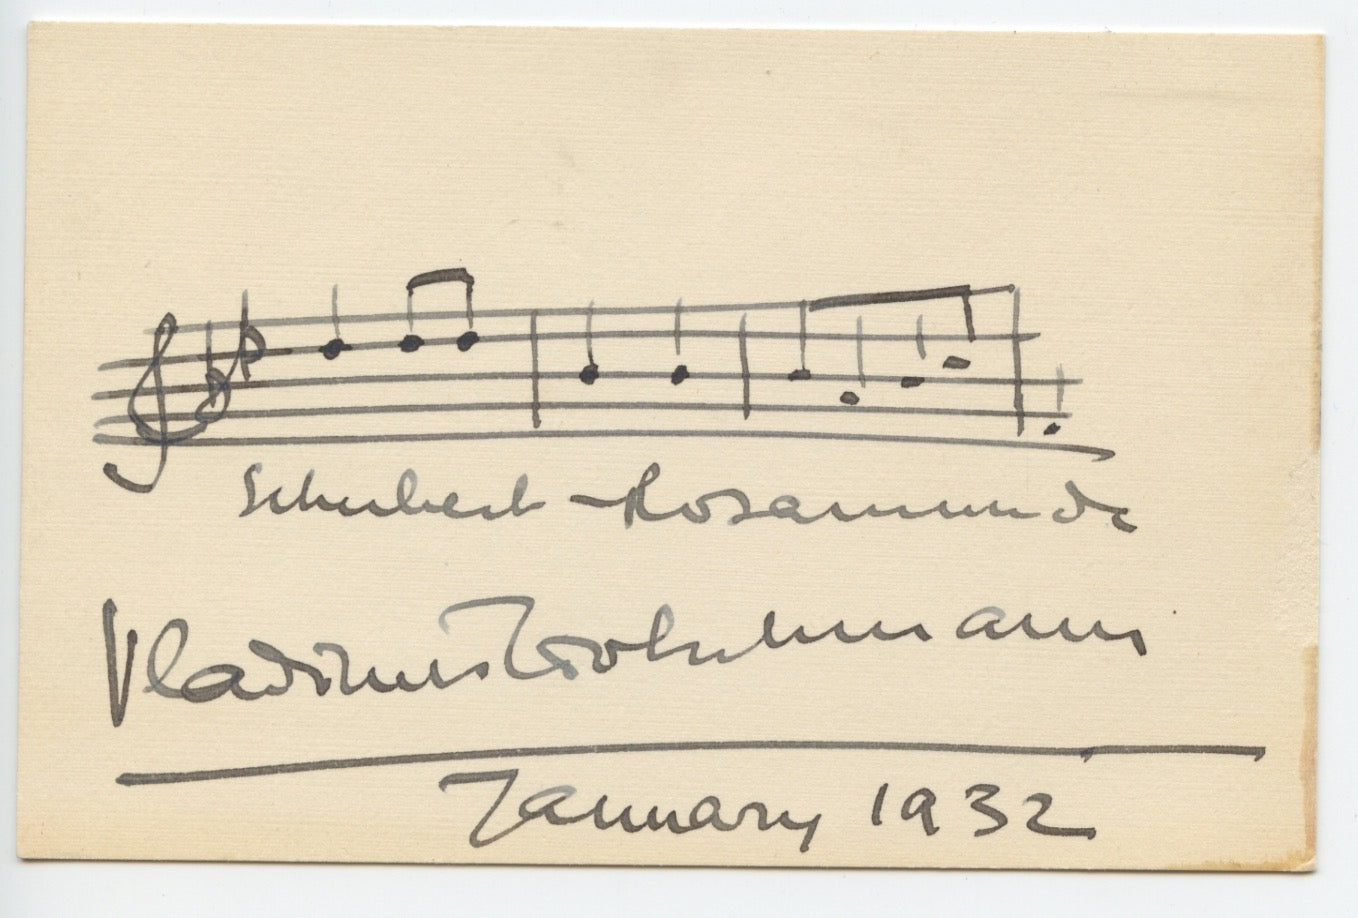 Schubert - Rosamunde
Vladimir Golschmann
January 1932